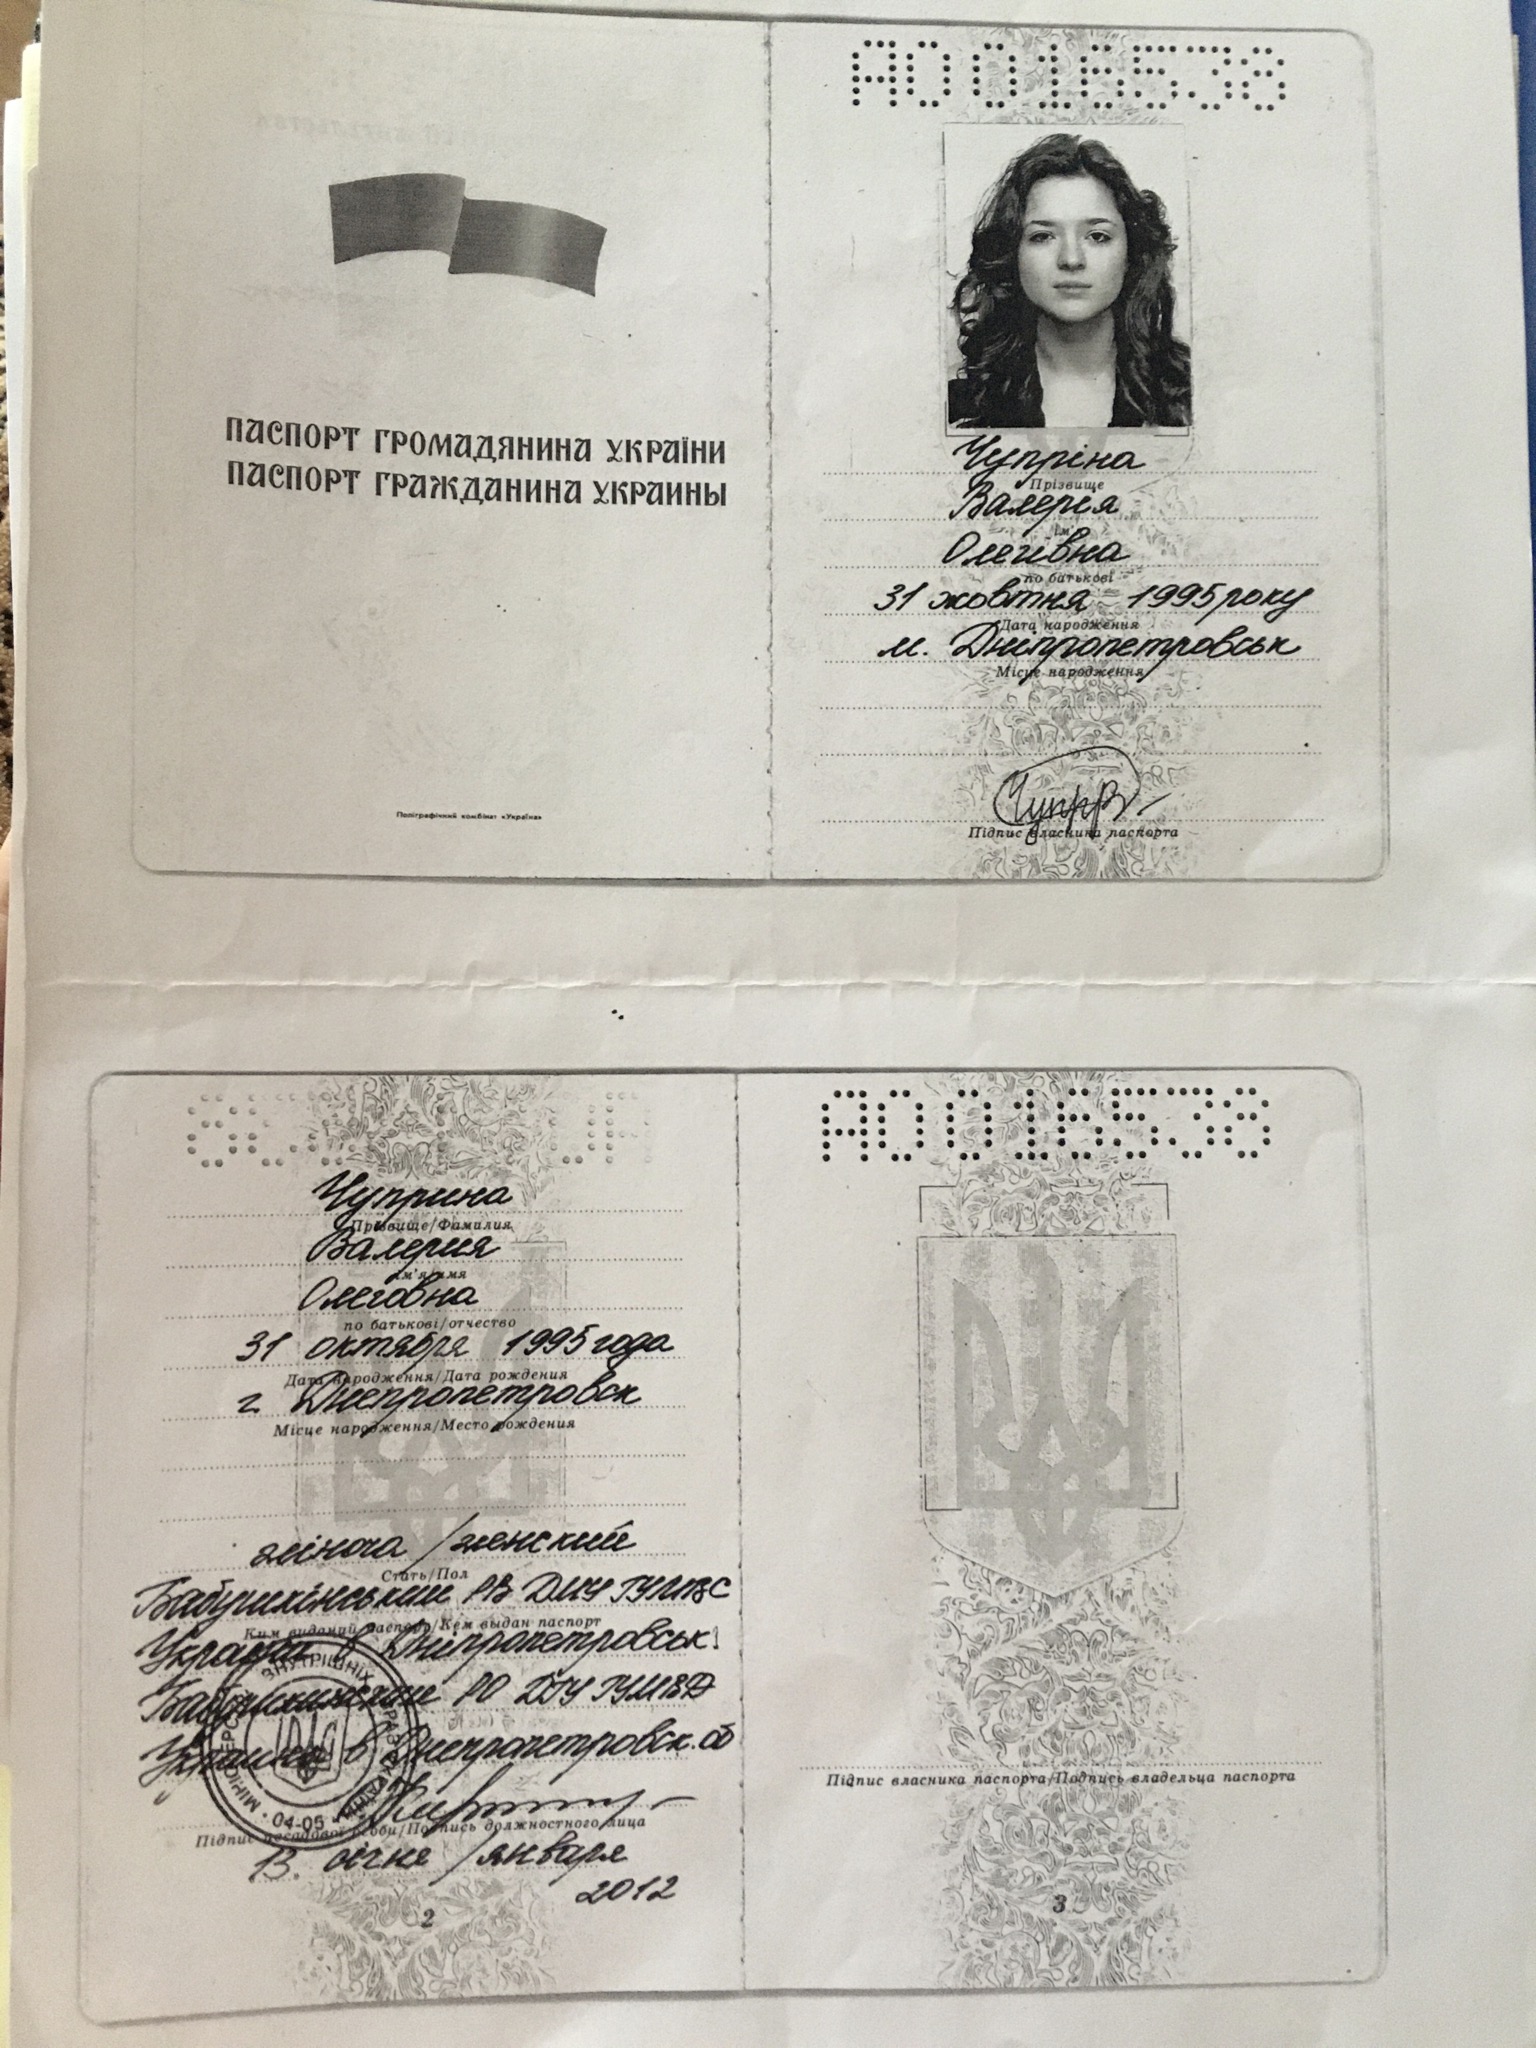 АО 016538
ПАСПОРТ ГРОМАДЯНИНА УКРАЇНИ
ПАСПОРТ ГРАЖДАНИНА УКРАИНЫ
Поліграфічний комбінат «Україна»
Чупріна
Прізвище
Валерія
Ім'я
Олегівна
по батькові
31 жовтня 1995 року
Дата народження
м. Дніпропетровськ
Місце народження
Підпис власника паспорта
Чуприна
Прізвище/Фамилия
Валерия
Ім'я/имя
Олеговна
по батькові/отчество
31 октября 1995 года
Дата народження/Дата рождения
г. Днепропетровск
Місце народження/Место рождения
жіноча / женский
Стать/Пол
Бабушкінський РВ ДМУ ГУМВС
Ким виданий паспорт/Кем выдан паспорт
України в Дніпропетровськ.
Бабушкинским РО ДГУ ГУМВД
Украины в Днепропетровск. об
Підпис посадової особи/Подпись должностного лица
13. січня / января
2012
2
04-05
АО 016538
Підпис власника паспорта/Подпись владельца паспорта
3